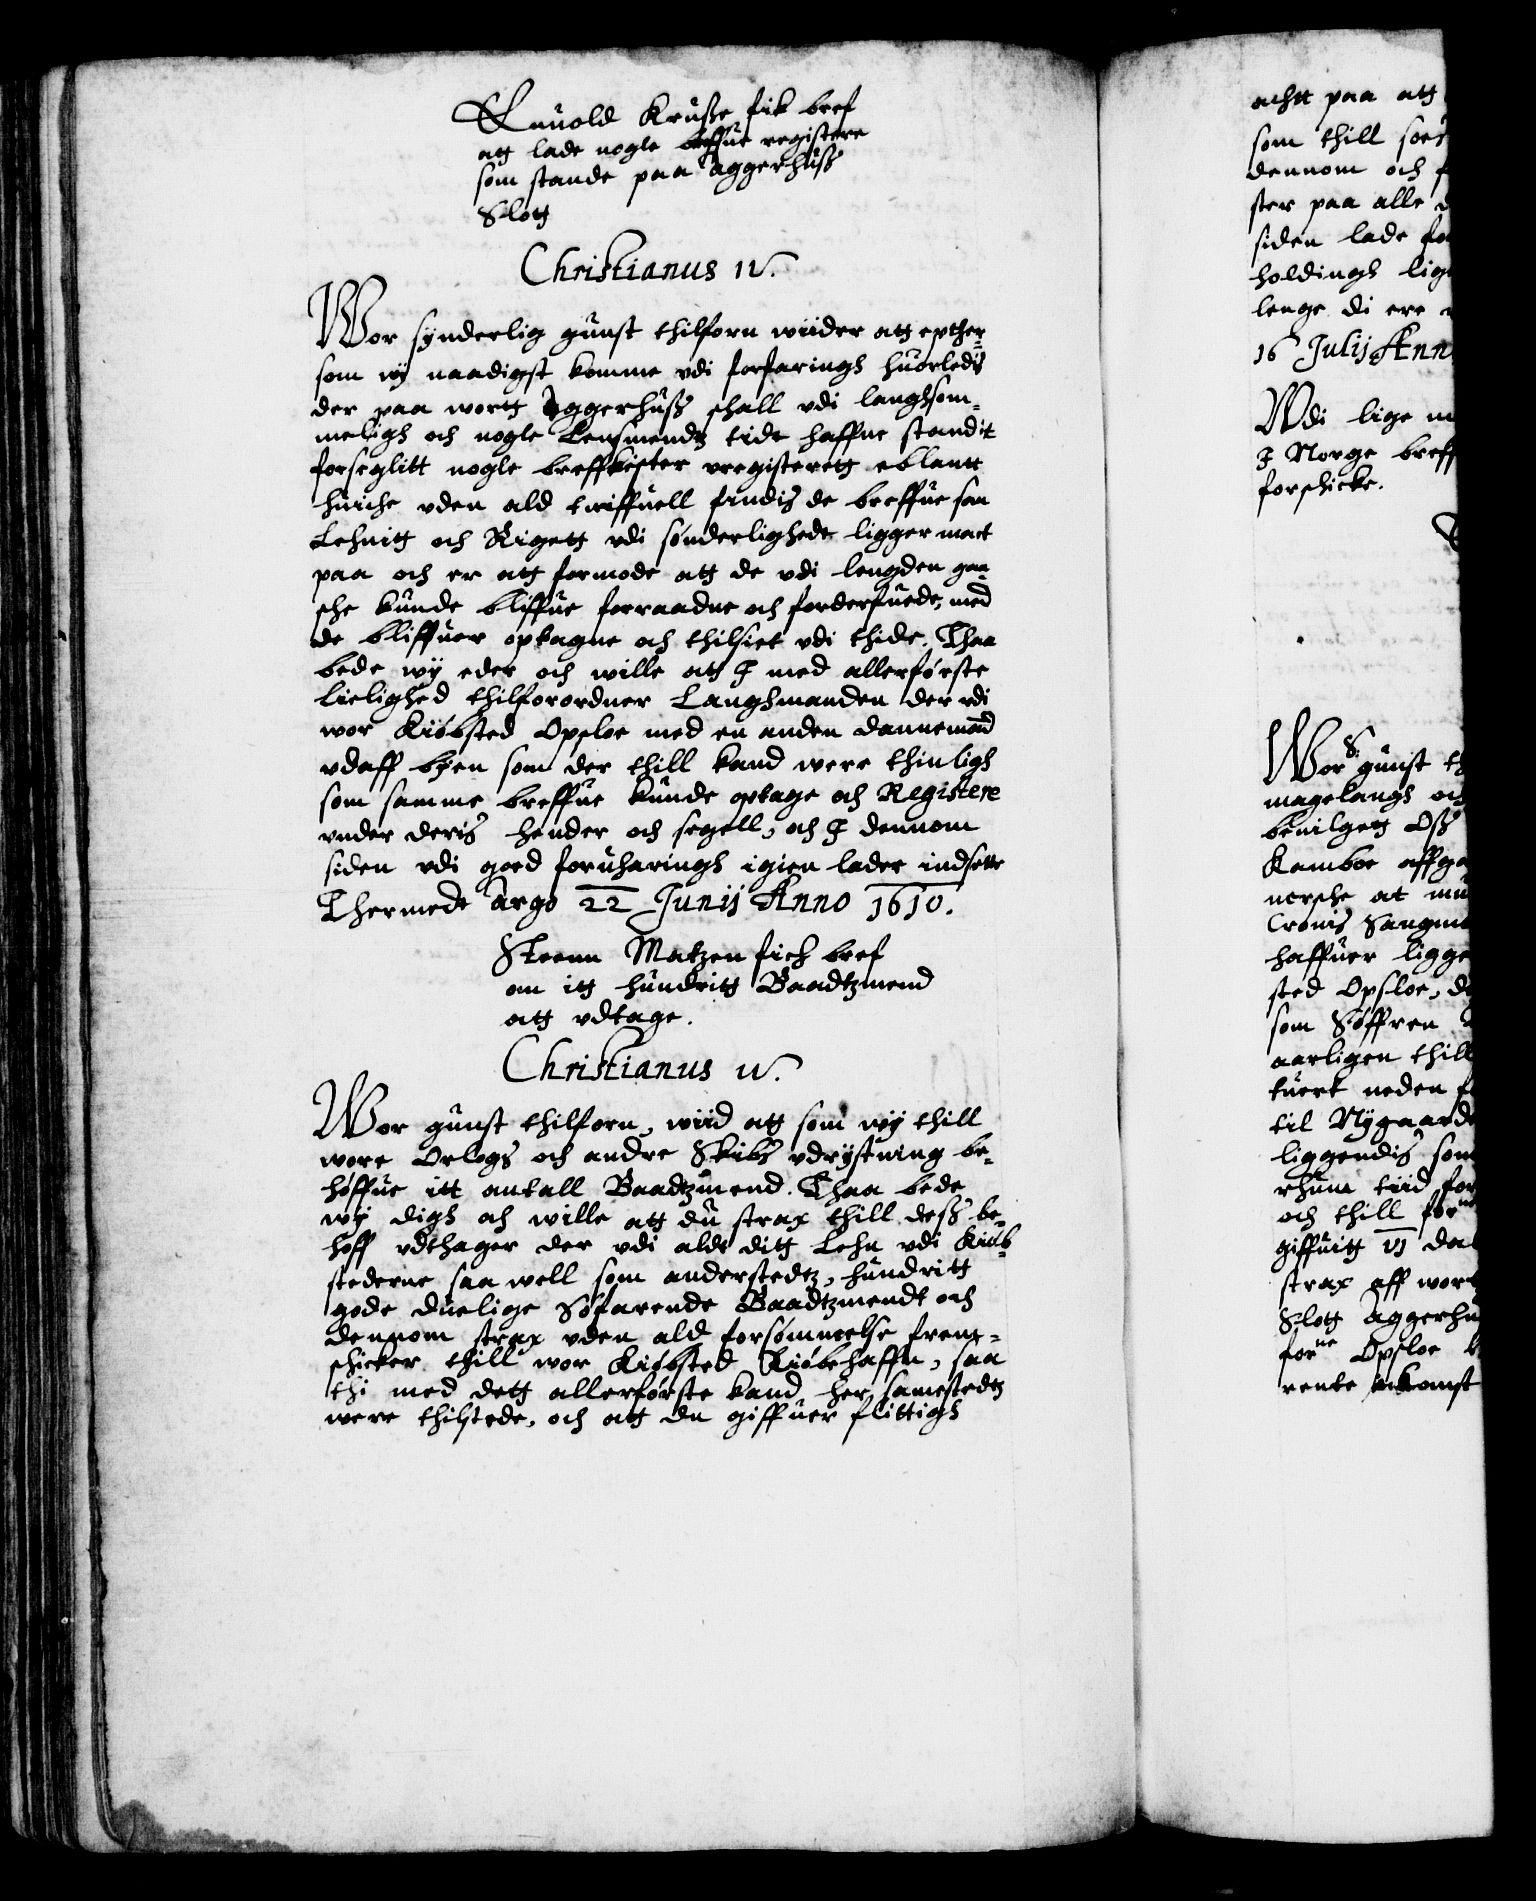 Enuold Krusse fik bref
att lade nogle breffue registere
som stande paa Aggerhuss
Slott
Christianus IV.
Wor synderlig gunst thilforn wiider att epther-
som wy naadigst komme vdi forfaringh huorledis
der paa wortt Aggerhuss schall vdi langhsom-
meligh och nogle Lensmendtz tide haffue standit
forseglitt nogle breffkister vregisterett eblantt
huiche vden ald twiffuell findis de breffue saa
Lehnitt och Rigett vdi sønderlighede ligger mact
paa och er att formode att de vdi lengden gan-
sche kunde bliffue forraadne och forderfuede, med
de bliffuer optagne och thilsiet vdi thide. Thaa
bede wy eder och wille att I med allerførste
lielighed thilforordner Laughmanden der vdi
wor Kiøbsted Opsloe med en anden dannemand
vdaff byen som der thill kand were thienligh
som samme breffue kunde optage och Registere
vnder deris hender och segell, och I dennom
siden vdi goed foruharingh igien lader indsette
Thermede Argo 22 Junij Anno 1610.
Steenn Matzen fich bref
om itt hundritt Baadtzmend
att vdtage.
Christianus IV.
Wor gunst thilforn, wiid att som wy thill
wore Orlogs och andre Skibs vdrystning be-
høffue itt antall Baadtzmend. Thaa bede
wy digh och wille att du strax thill dess be-
hoff vdthager der vdi aldt ditt Lehn vdi Kiøb-
stederne saa well som anderstedtz, hundritt
gode duelige Søfarende Baadtzmendt och
dennom strax vden ald forsømmelse frem-
schicker thill wor Kiøbsted Kiøbehaffn, saa
thi med dett allerførste kand her samestedtz
were thilstede, och att du giffuer flittigh
achtt paa att
som thill soes
dennom och f
ster paa alle d
siden lade fo
holdingh lig
lenge di ere
16 Julij Ann
Wdi lige m
I Norge breff
forschicke.
Wor S. gunst th
magelaugh och
beuilgett Oss
Kamboe affga
nersche at mu
Cronis
haffuer ligge
sted Opsloe, d
som Søffren
aarligen thill
tuert neden f
til Nygaarde
liggendis som
rhum tiid for
och thill forne
giffuitt vj dal
strax aff wort
Slott Aggerhu
forne Opsloe
rente